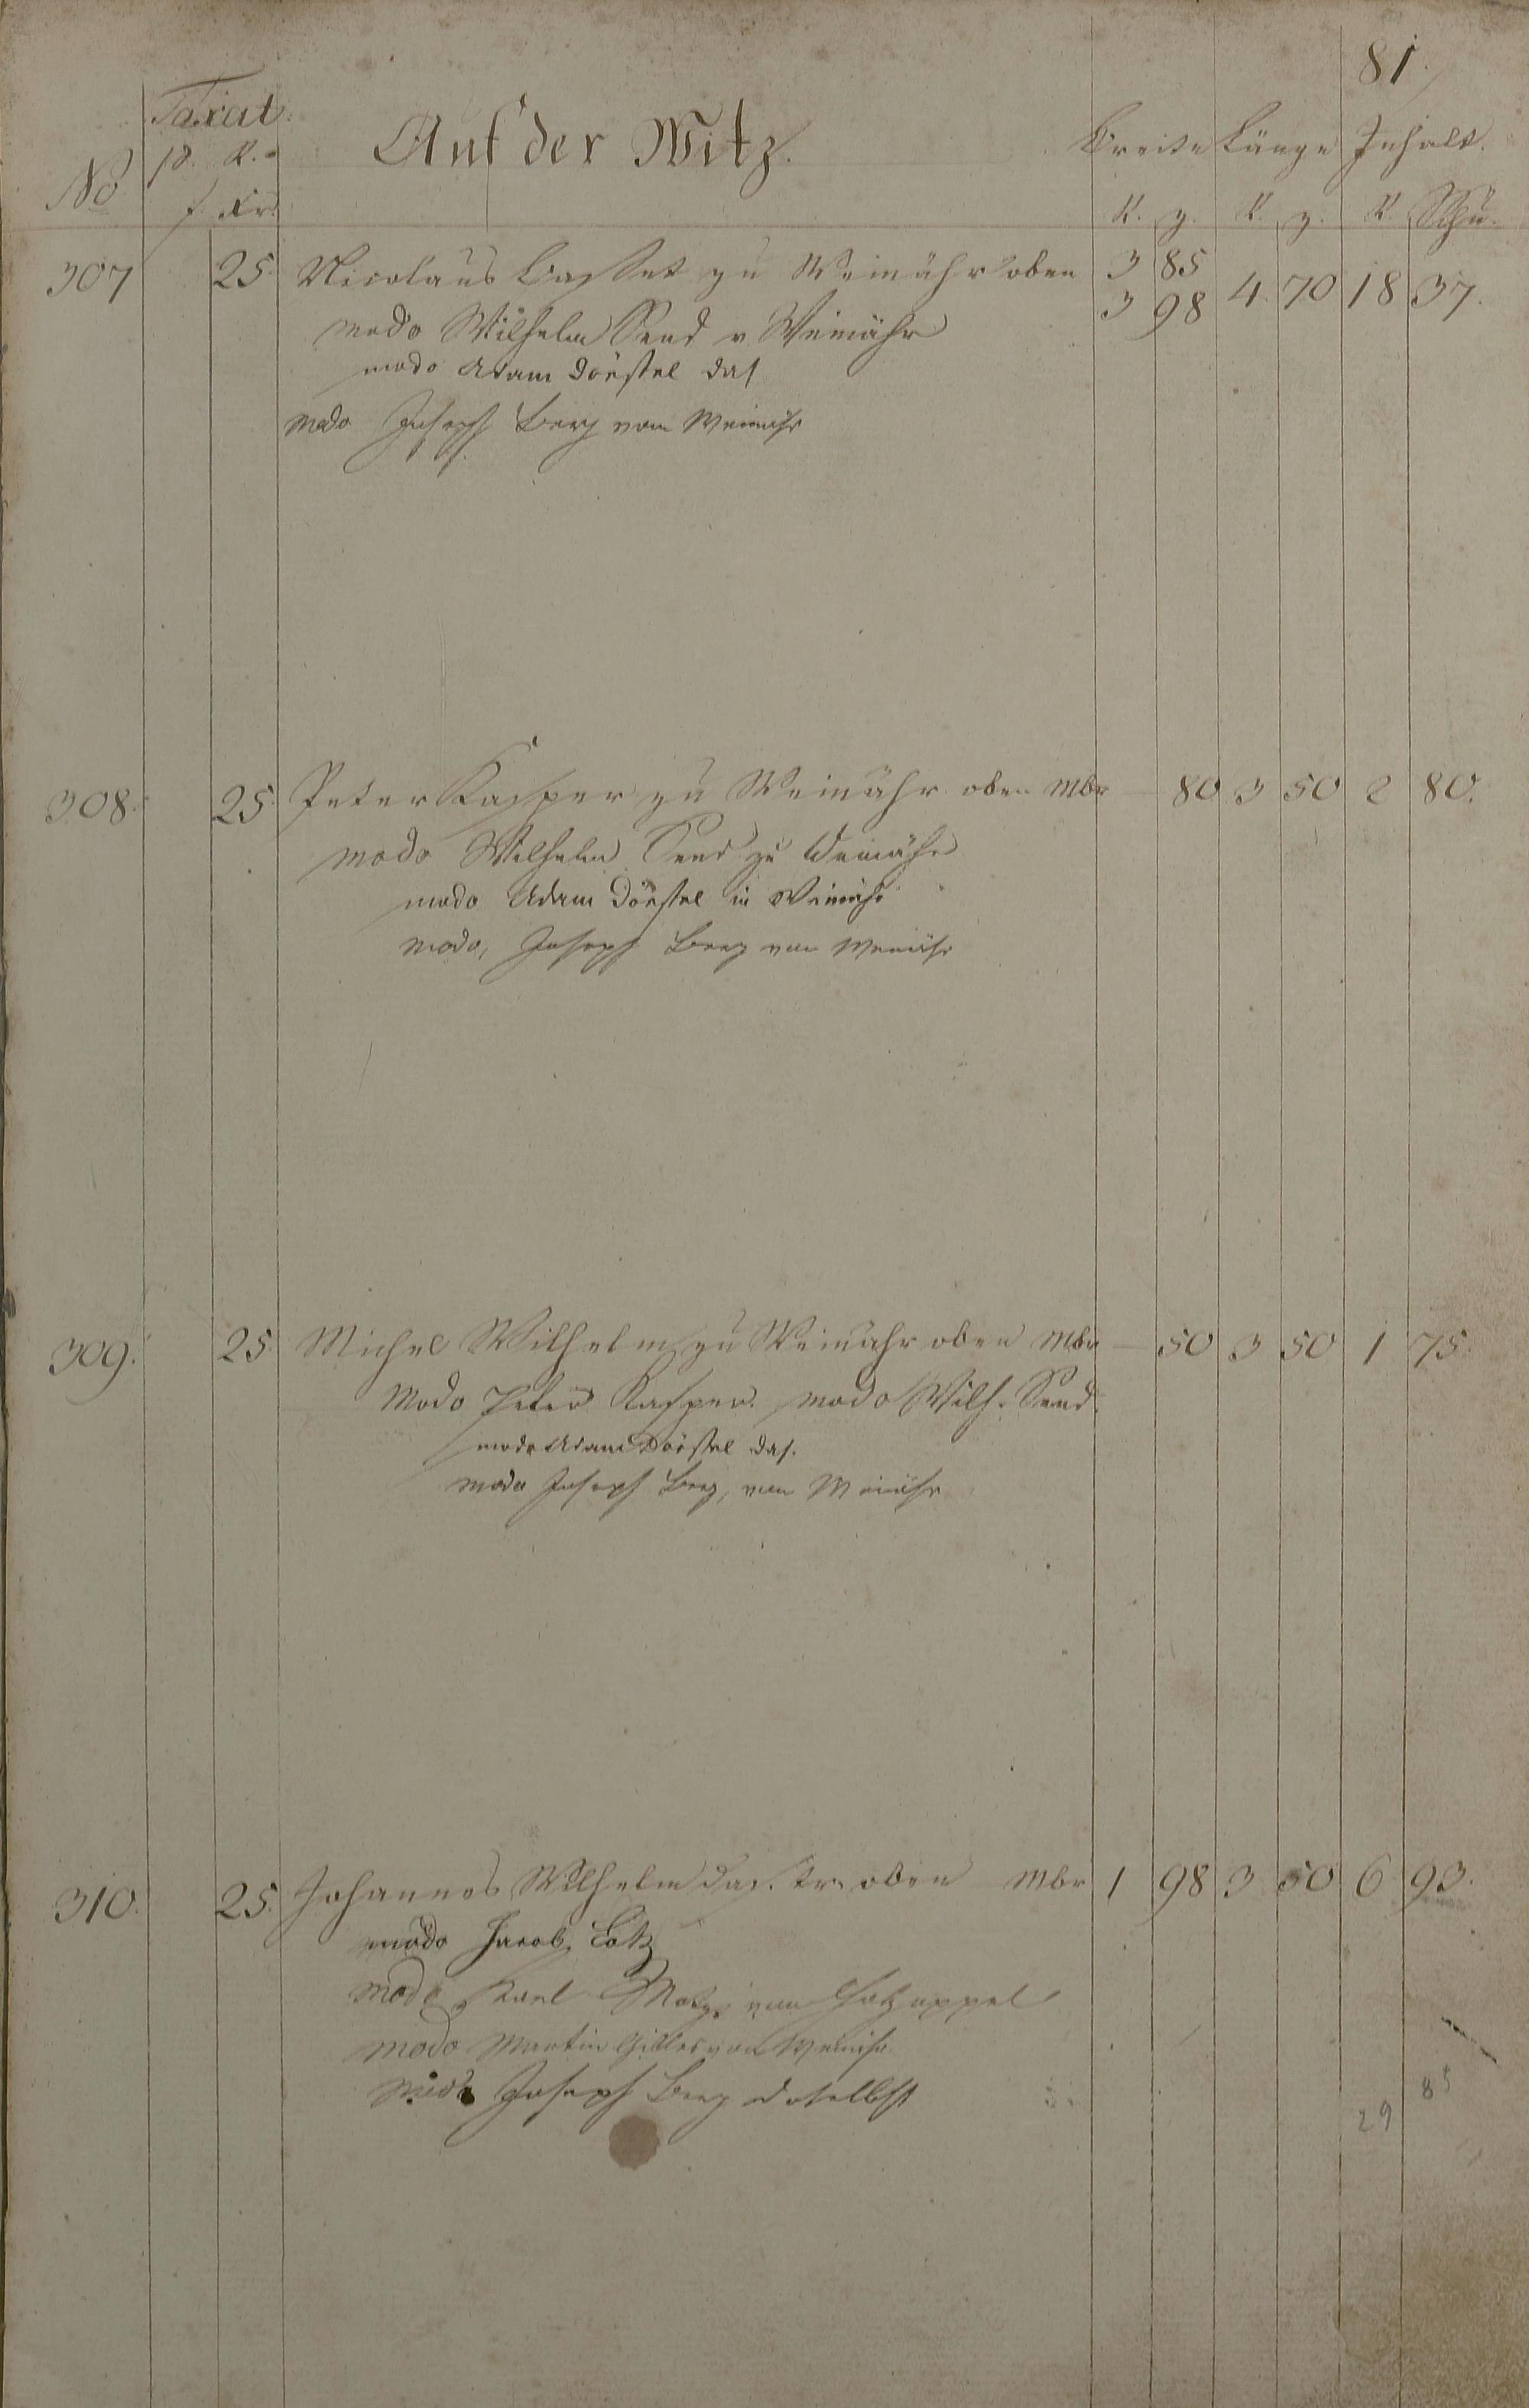 81.
Taxat.
Auf der Witz.
Breite Länge Inhalt.
No p. R.
f. Kr.
R. z. R. z. R. Schu.
307 25 Nicolaus Casset zu Weinähr oben 3 85
3 98 4 70 18 37.
modo Wilhelm Send v Weinähr
modo Adam Dörstel das
modo Joseph Berg von Weinähr
308. 25. Peter Kasper zu Weinähr oben Mbr — 80 3 50 2 80.
modo Wilhelm Send zu Weinähr
modo Adam Dörstel in Weinähr
modo, Joseph Berg von Weinähr
309. 25 Michel Wilhelm zu Weinähr oben Mbr — 50 3 50 1 75.
Modo Peter Kasper. modo Wilh. Send.
modo Adam Dörstel das.
modo Joseph Berg, von Weinähr
310. 25. Johannes Wilhelm das. oben Mbr 1 98 3 50 6 93.
modo Jacob Lotz
modo Karl von Holzappel
modo Martin Gilles von Weinähr
modo Joseph Berg daselbst
29 85